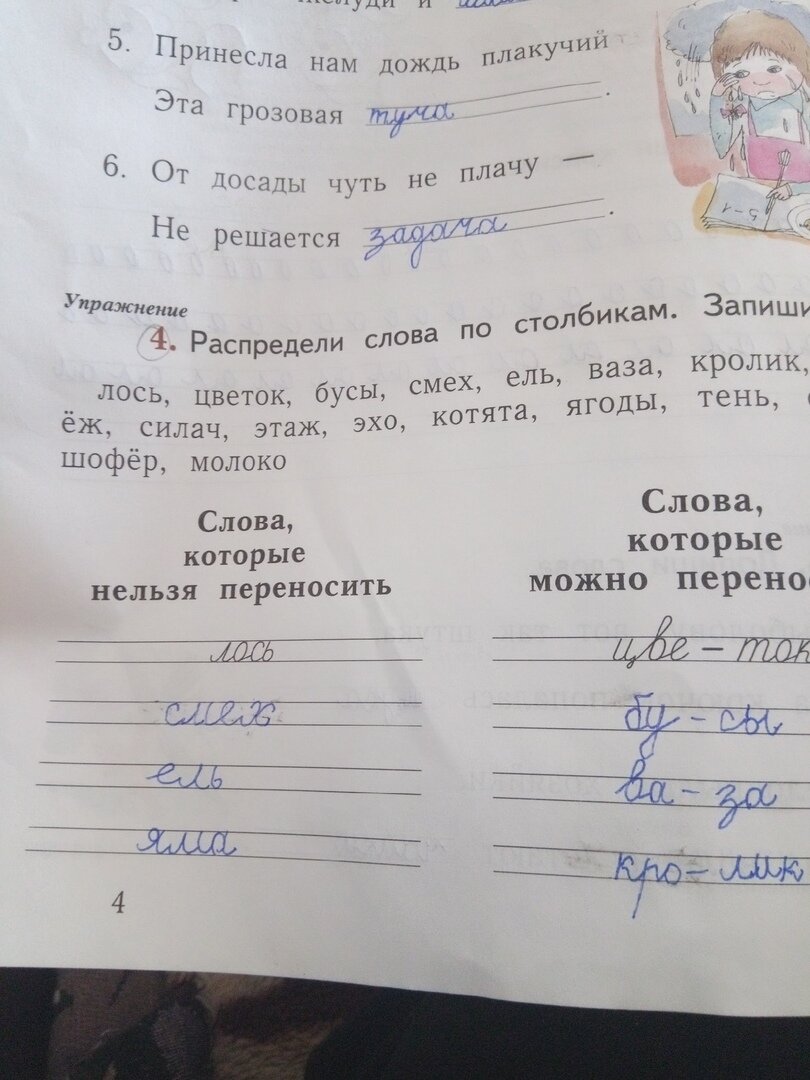 и
5. Принесла нам дождь плакучий
Эта грозовая туча.
6. От досады чуть не плачу —
Не решается задача.
5-1
Упражнение
4. Распредели слова по столбикам. Запиши
лось, цветок, бусы, смех, ель, ваза, кролик,
ёж, силач, этаж, эхо, котята, ягоды, тень,
шофёр, молоко
Слова,
которые
нельзя переносить
лось
смех
ель
яма
Слова,
которые
можно перено
цве - ток
бу - сы
ва - за
кро - лик
4